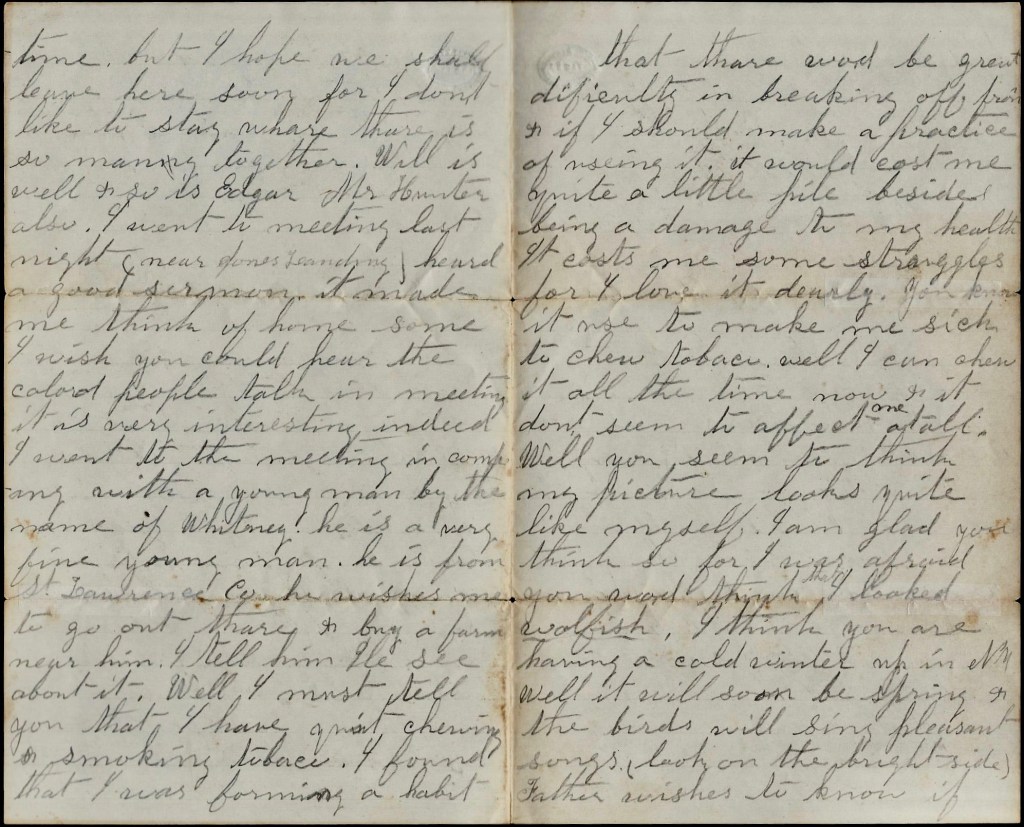 time. but I hope we shall
leave here soon for I dont
like to stay whare thare is
so manny together. Will is
well & so is Edgar Mr Hunter
also. I went to meeting last
night (near Jones Landing) heard
a good sermon. it made
me think of home some
I wish you could hear the
colord people talk in meeting
it is very interesting indeed
I went to the meeting in comp
any with a young man by the
name of Whitney. he is a very
fine young man. he is from
St. Lawrence Co. he wishes me
to go out thare & buy a farm
near him. I tell him Ile see
about it. Well I must tell
you that I have quit chewing
& smoking tobaco. I found
that I was forming a habit
that thare wod be great
dificulty in breaking off from
& if I should make a practice
of useing it. it would cost me
quite a little pile besides
being a damage to my health
It costs me some struggles
for I love it dearly. You know
it use to make me sick
to chew tobaco. well I can chew
it all the time now & it
dont seem to affect me atall.
Well you seem to think
my picture looks quite
like myself. I am glad you
think so for I was afraid
you wod think that I looked
wolfish. I think you are
having a cold winter up in N.Y.
Well it will soon be spring &
the birds will sing pleasant
songs. (look on the bright side)
Father wishes to know if